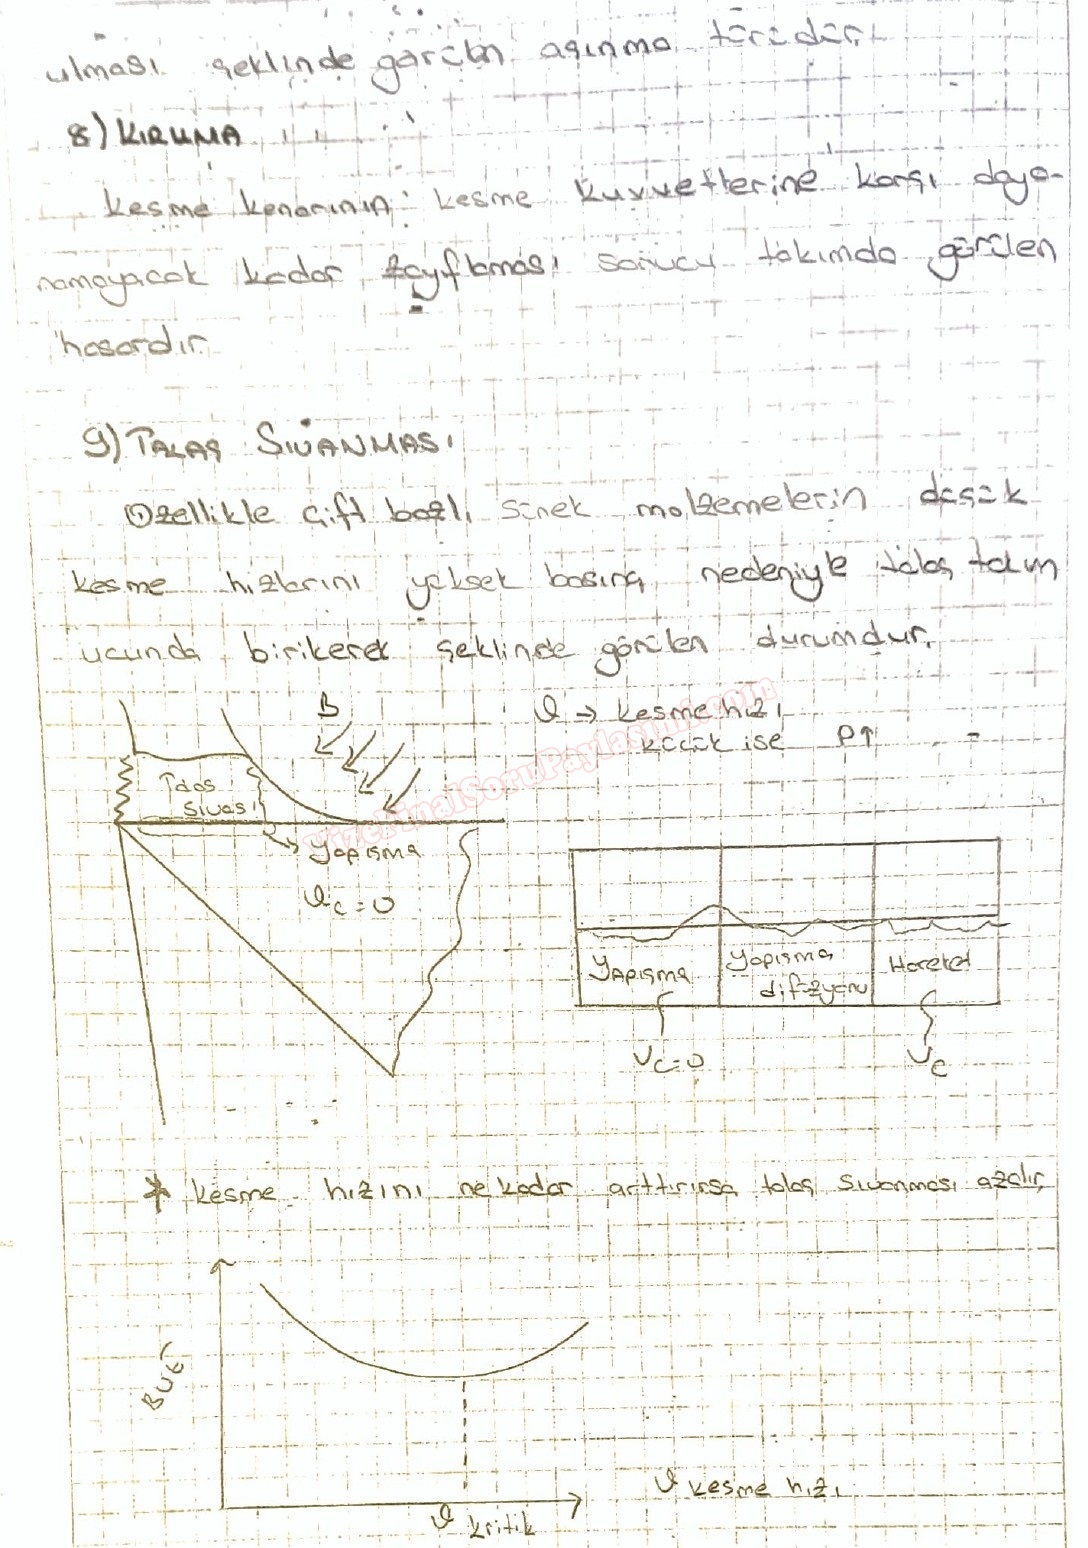 ulması şeklinde görülen aşınma türüdür.
8) KIRILMA
Kesme kenarının kesme kuvvetlerine karşı daya-
namayacak kadar zayıflaması sonucu takımda görülen
hasardır.
9) TALAŞ SIVANMASI
Özellikle çift bazlı sünek malzemelerin düşük
kesme hızlarını yüksek basınç nedeniyle talaş takım
ucunda birikerek şeklinde görülen durumdur.
B
ϑ → kesme hızı
küçük ise P↑
Talaş
Sıvası
Yapışma
ϑc=0
Yapışma
Yapışma
difüzyonu
Hareket
Vc=0
Vc
* Kesme hızını ne kadar arttırırsa talaş sıvanması azalır.
BUE
ϑ kesme hızı
ϑ kritik
VizeFinalSoruPaylasimi.com